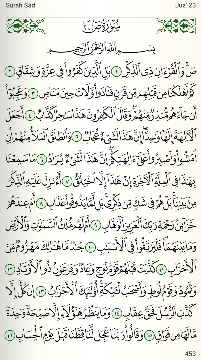 Surah Sad
Juz' 23
سُورَةُ صٓ
بِسْمِ ٱللَّهِ ٱلرَّحْمَٰنِ ٱلرَّحِيمِ
صٓ وَٱلْقُرْءَانِ ذِى ٱلذِّكْرِ ١ بَلِ ٱلَّذِينَ كَفَرُوا۟ فِى عِزَّةٍ وَشِقَاقٍ ٢
كَمْ أَهْلَكْنَا مِن قَبْلِهِم مِّن قَرْنٍ فَنَادَوا۟ وَّلَاتَ حِينَ مَنَاصٍ ٣ وَعَجِبُوٓا۟
أَن جَآءَهُم مُّنذِرٌ مِّنْهُمْ وَقَالَ ٱلْكَٰفِرُونَ هَٰذَا سَٰحِرٌ كَذَّابٌ ٤ أَجَعَلَ
ٱلْـَٔالِهَةَ إِلَٰهًا وَٰحِدًا إِنَّ هَٰذَا لَشَىْءٌ عُجَابٌ ٥ وَٱنطَلَقَ ٱلْمَلَأُ مِنْهُمْ أَنِ
ٱمْشُوا۟ وَٱصْبِرُوا۟ عَلَىٰٓ ءَالِهَتِكُمْ إِنَّ هَٰذَا لَشَىْءٌ يُرَادُ ٦ مَا سَمِعْنَا
بِهَٰذَا فِى ٱلْمِلَّةِ ٱلْـَٔاخِرَةِ إِنْ هَٰذَآ إِلَّا ٱخْتِلَٰقٌ ٧ أَءُنزِلَ عَلَيْهِ ٱلذِّكْرُ
مِنۢ بَيْنِنَا بَلْ هُمْ فِى شَكٍّ مِّن ذِكْرِى بَل لَّمَّا يَذُوقُوا۟ عَذَابِ ٨ أَمْ عِندَهُمْ
خَزَآئِنُ رَحْمَةِ رَبِّكَ ٱلْعَزِيزِ ٱلْوَهَّابِ ٩ أَمْ لَهُم مُّلْكُ ٱلسَّمَٰوَٰتِ وَٱلْأَرْضِ
وَمَا بَيْنَهُمَا فَلْيَرْتَقُوا۟ فِى ٱلْأَسْبَٰبِ ١٠ جُندٌ مَّا هُنَالِكَ مَهْزُومٌ مِّنَ
ٱلْأَحْزَابِ ١١ كَذَّبَتْ قَبْلَهُمْ قَوْمُ نُوحٍ وَعَادٌ وَفِرْعَوْنُ ذُو ٱلْأَوْتَادِ ١٢
وَثَمُودُ وَقَوْمُ لُوطٍ وَأَصْحَٰبُ لْـَٔيْكَةِ أُو۟لَٰٓئِكَ ٱلْأَحْزَابُ ١٣ إِن كُلٌّ إِلَّا
كَذَّبَ ٱلرُّسُلَ فَحَقَّ عِقَابِ ١٤ وَمَا يَنظُرُ هَٰٓؤُلَآءِ إِلَّا صَيْحَةً وَٰحِدَةً
مَّا لَهَا مِن فَوَاقٍ ١٥ وَقَالُوا۟ رَبَّنَا عَجِّل لَّنَا قِطَّنَا قَبْلَ يَوْمِ ٱلْحِسَابِ ١٦
453